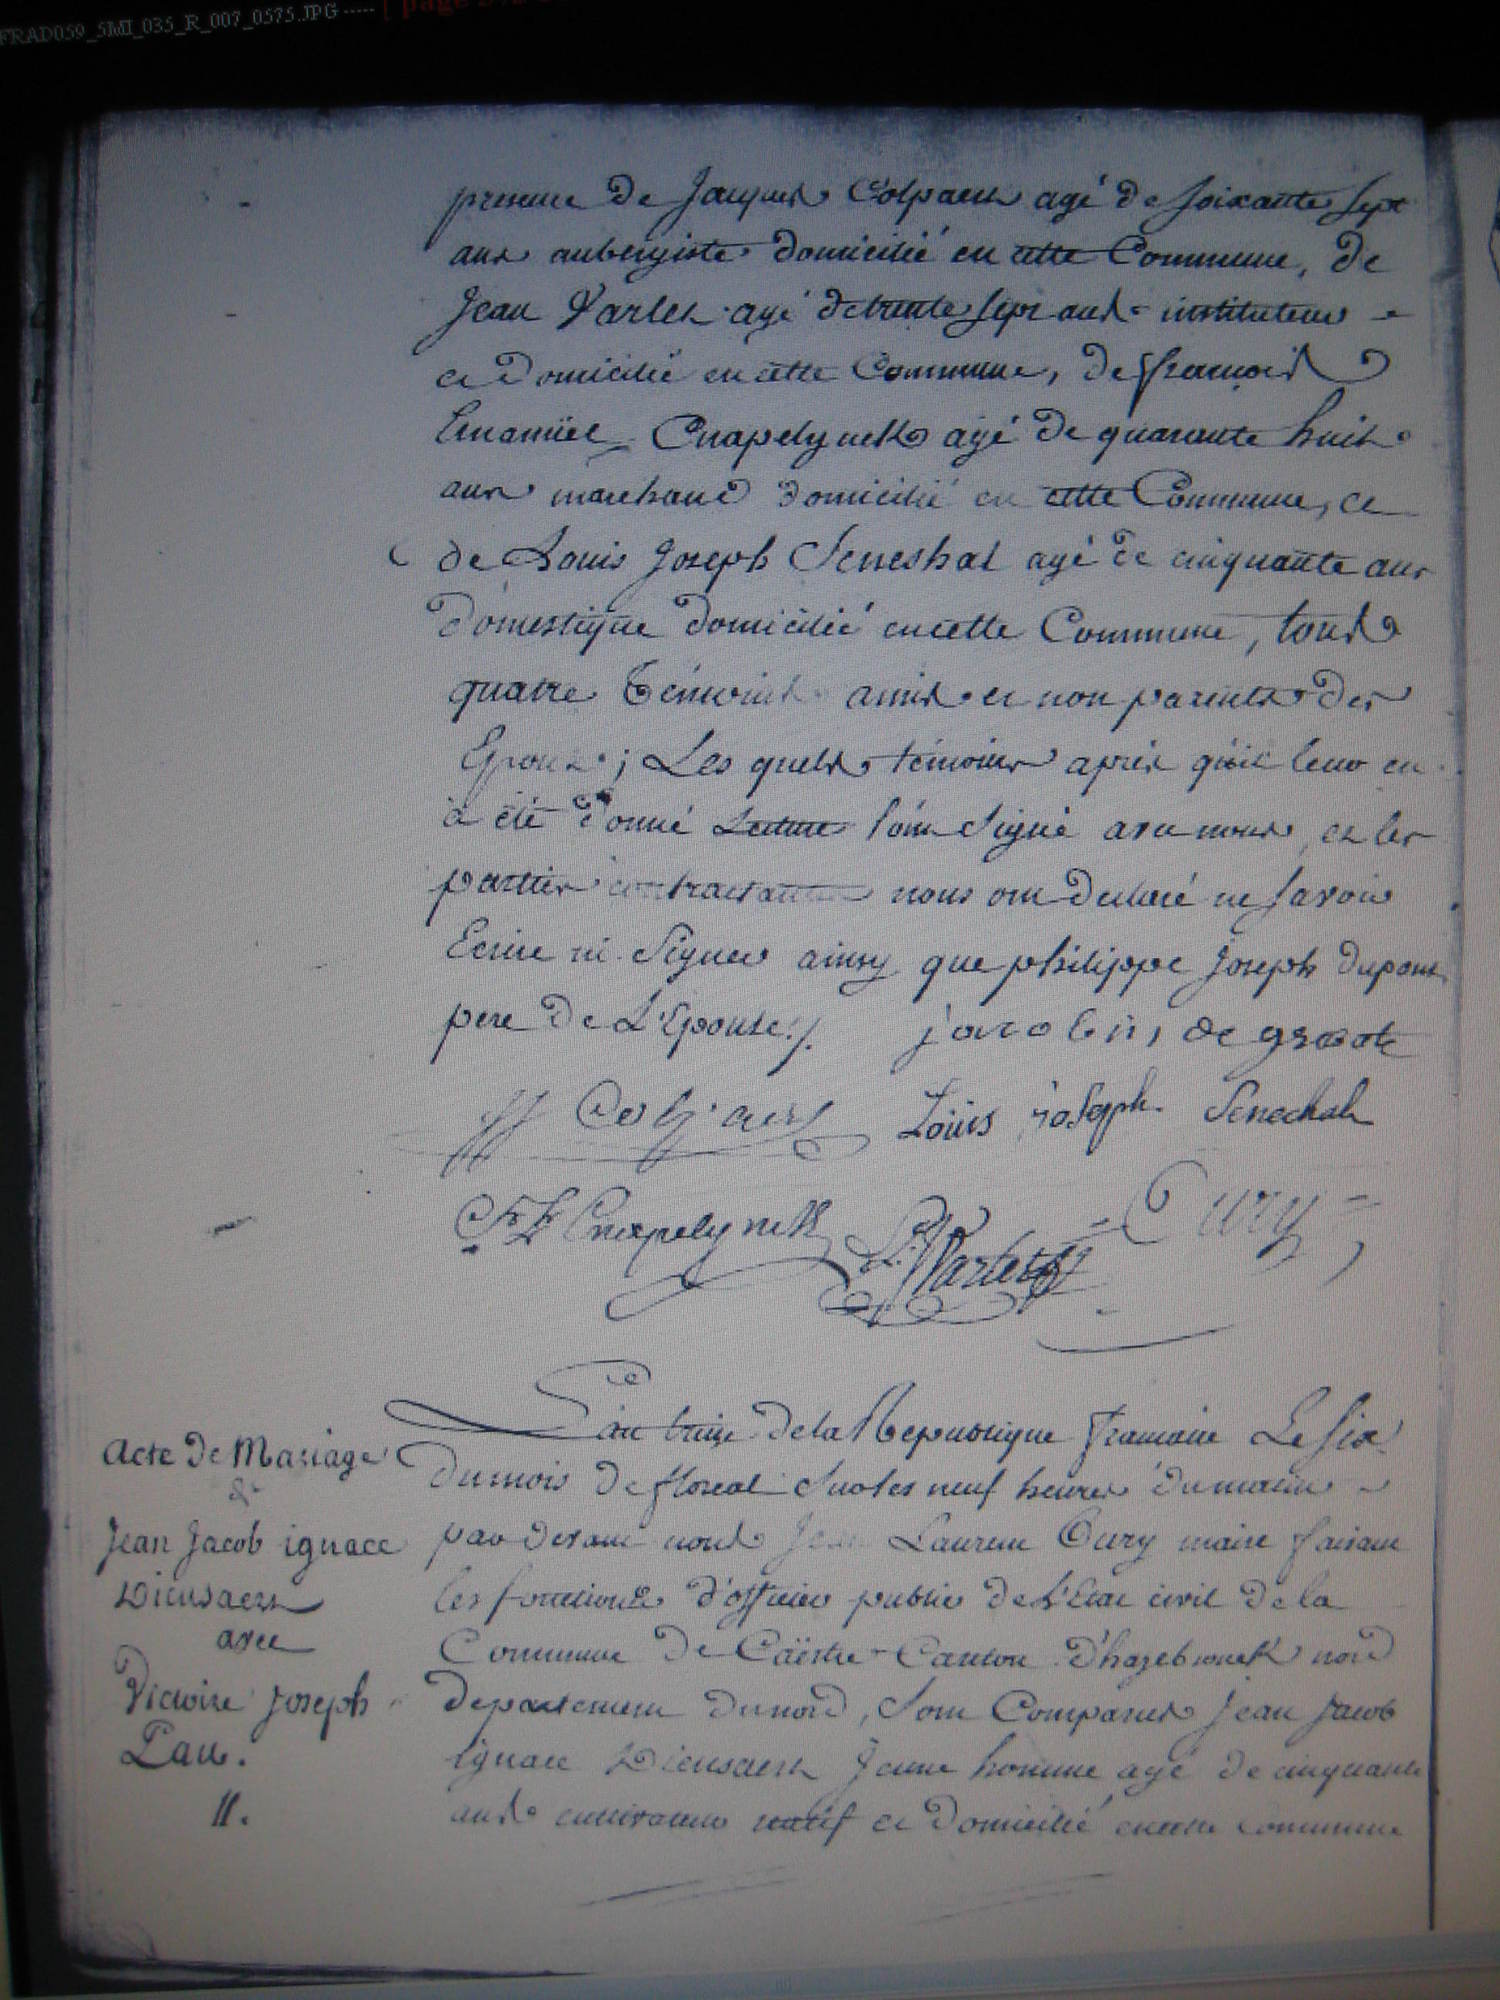 FRAD059_5MI_035_R_007_0575.JPG ----- [ page
presence de Jacques Colpaert agé de soixante sept
ans aubergiste domicilié en cette Commune, de
Jean Varlet agé de trente sept ans instituteur
et Domicilié en cette Commune, de françois
Emanuel Cnapelynck agé de quarante huit
ans marchand domicilié en cette Commune, et
de Louis Joseph Seneshal agé de cinquante ans
domestique domicilié en cette Commune, tous
quatre témoins amis et non parents des
Epoux ; Les quels témoins après qu'il leur en
a été donné Lecture sont signé avec nous, et les
parties contractantes nous ont declaré ne savoir
Ecrire ni Signer ainsy que philippe Joseph dupont
pere de L'Epouse ./. de groote
Colpaert Louis joseph Senechal
Cnapelynck Varlet Cury
L'an treize de la Republique francaise Le six
du mois de floreal sur les neuf heures du matin
par devant nous Jean Laurent Cury maire faisant
les fonctions d'officier public de L'Etat civil de la
Commune De Caëstre Canton d'hazebrouck nord
departement du nord, sont Comparus Jean Jacob
ignace Dieusaert Jeune homme agé de cinquante
ans cultivateur natif et domicilié en cette commune
acte de Mariage
de
Jean Jacob ignace
Dieusaert
avec
Victoire Joseph
Pau.
11.